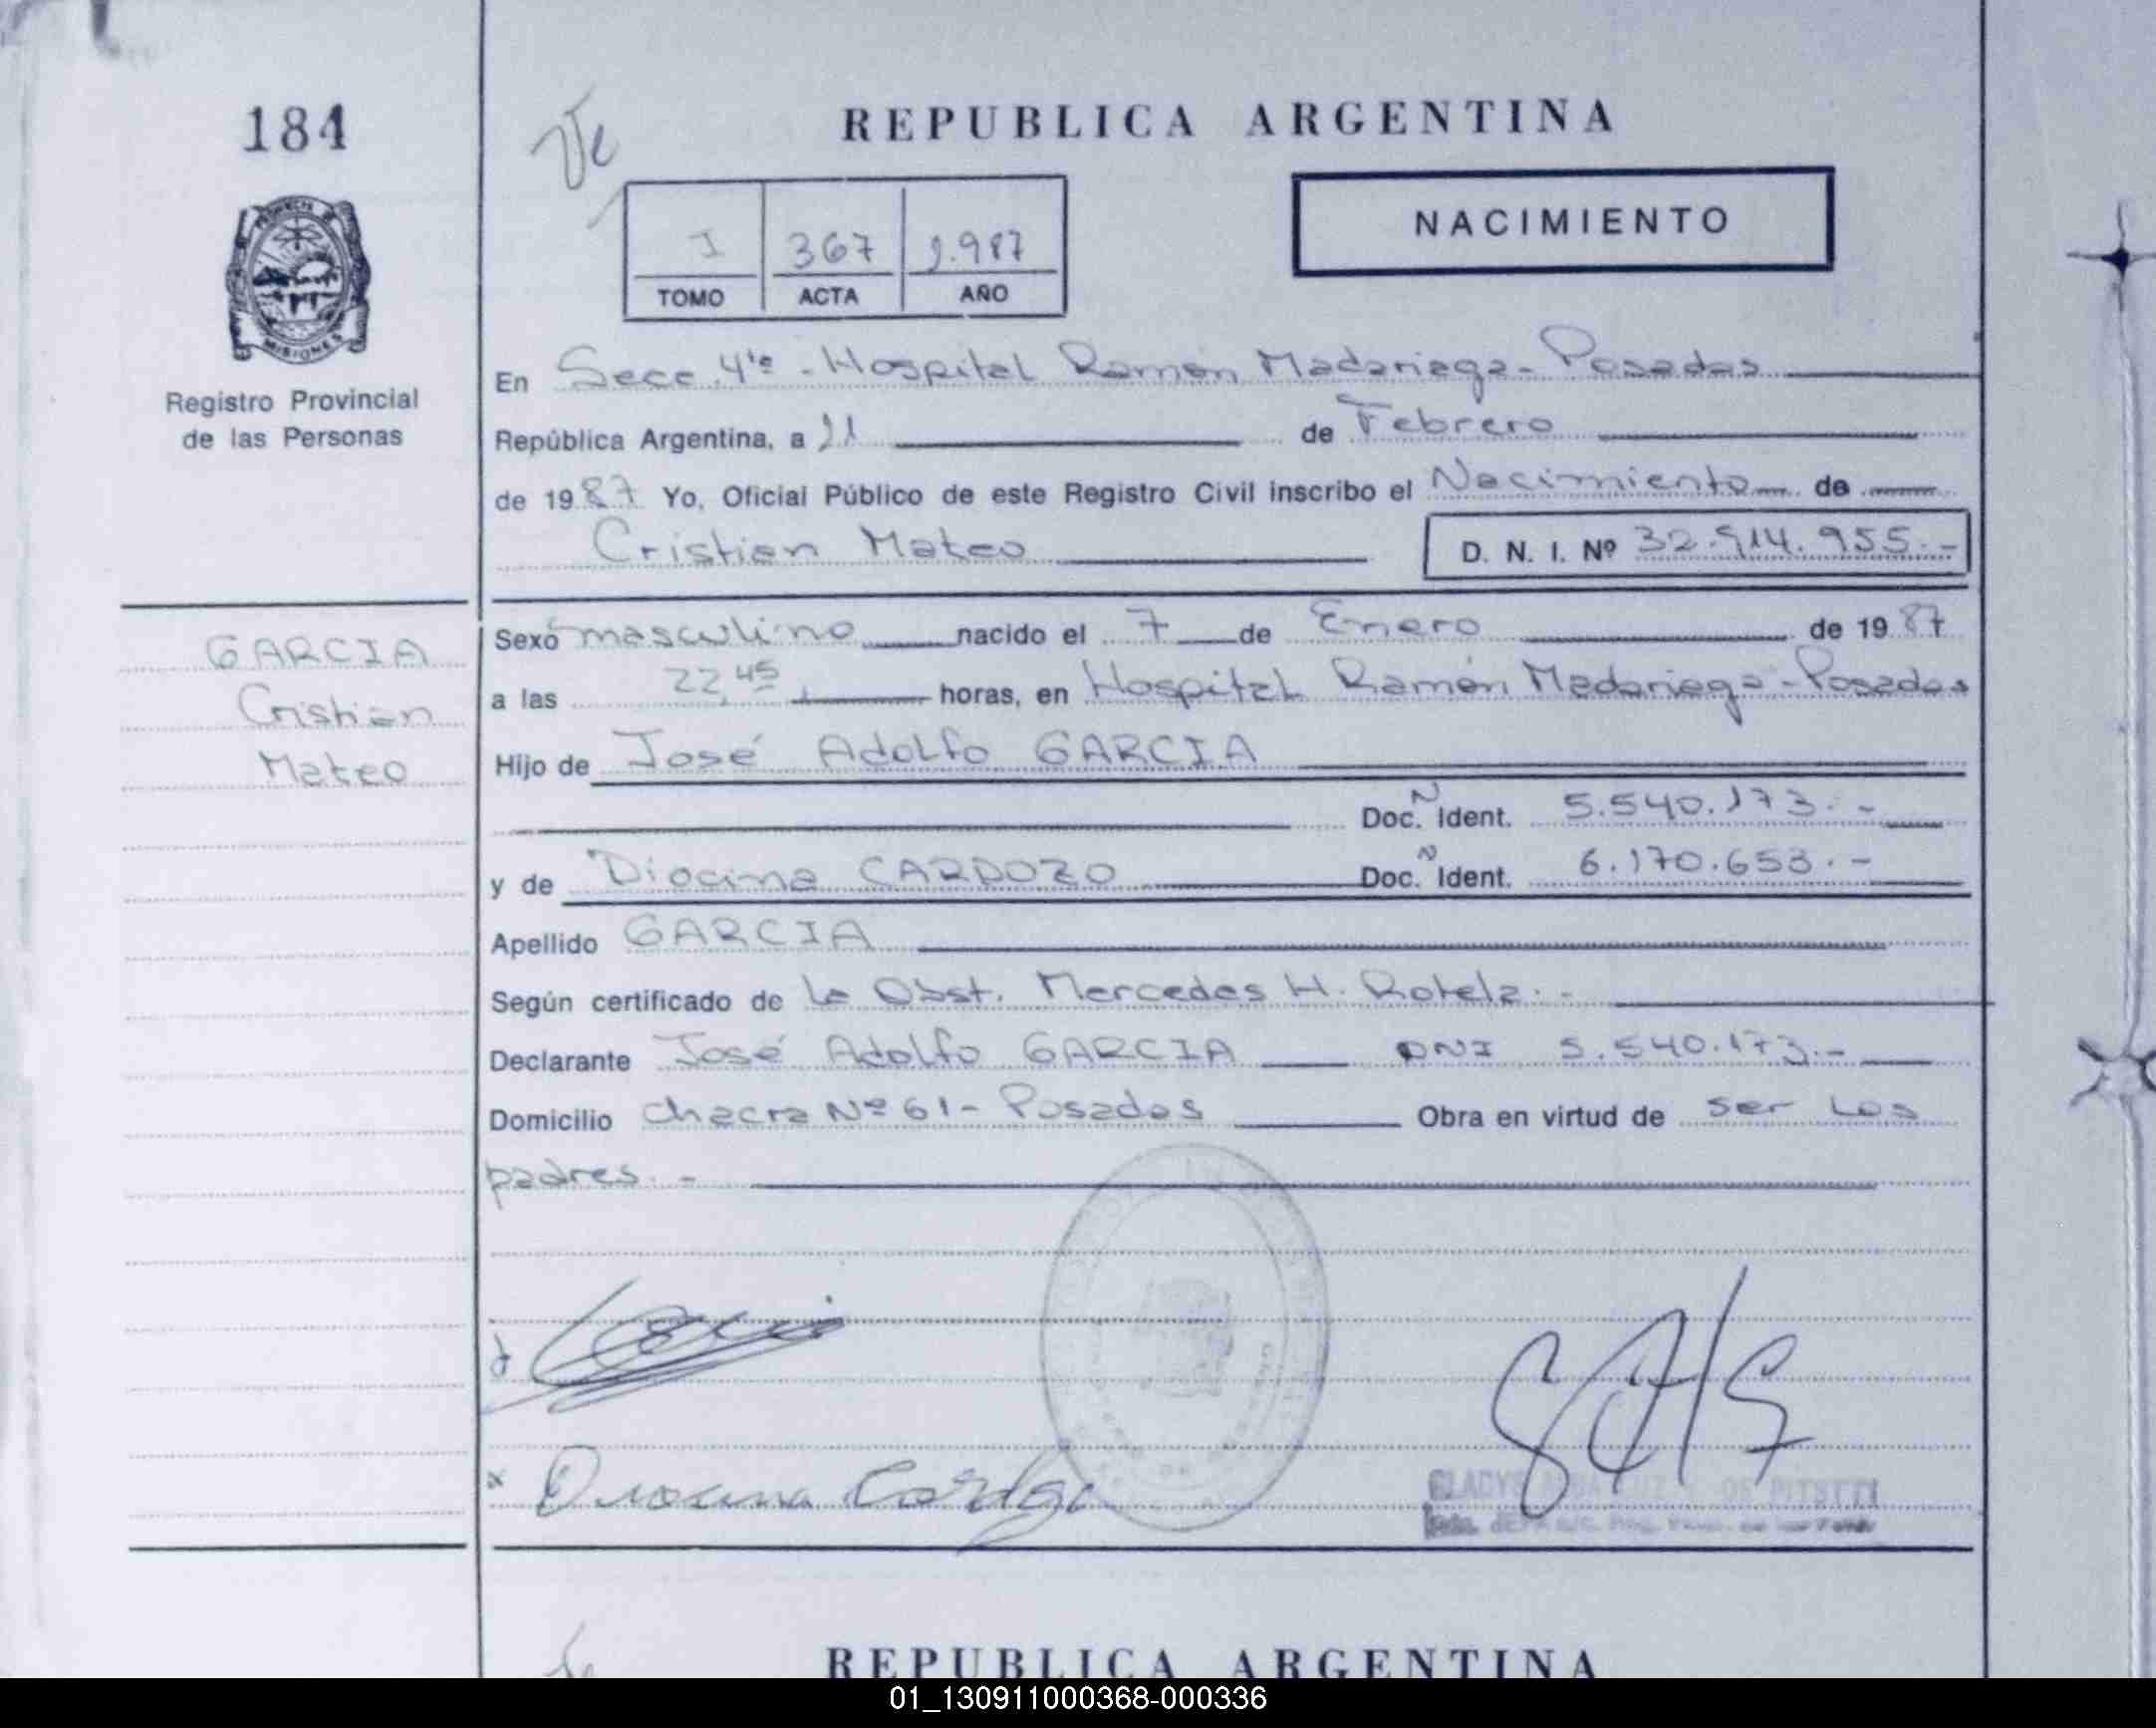 184
REPUBLICA ARGENTINA
I 367 1.987
TOMO ACTA AÑO
NACIMIENTO
MISIONES
Registro Provincial
de las Personas
En Secc. 4ta - Hospital Ramón Madariaga - Posadas
República Argentina, a 11 de Febrero
de 1987 Yo, Oficial Público de este Registro Civil inscribo el Nacimiento de
Cristian Mateo D. N. I. Nº 32.914.955.-
GARCIA
Cristian
Mateo
Sexo masculino nacido el 7 de Enero de 1987
a las 22,45 horas, en Hospital Ramón Madariaga - Posadas
Hijo de José Adolfo GARCIA
Doc. N Ident. 5.540.173.-
y de Diocina CARDOZO Doc. N Ident. 6.170.653.-
Apellido GARCIA
Según certificado de la Obst. Mercedes H. Rotela.-
Declarante José Adolfo GARCIA DNI 5.540.173.-
Domicilio Chacra Nº 61 - Posadas Obra en virtud de ser Los
padres.-
GLADYS DE
REPUBLICA ARGENTINA
01_130911000368-000336